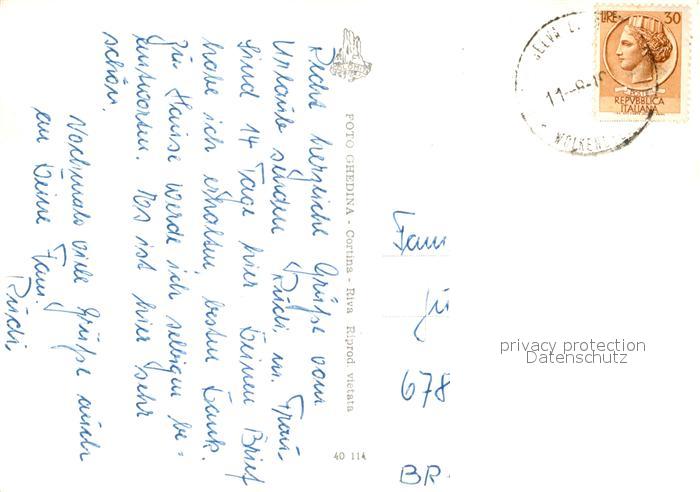 Recht herzliche Grüße vom
Urlaub senden Rudi u. Frau.
Sind 14 Tage hier. Deinen Brief
habe ich erhalten, besten Dank.
Zu Hause werde ich selbigen be=
antworten. Es ist hier sehr
schön.
Nochmals viele Grüße auch
an Deine Fam.
Rudi.
FOTO GHEDINA - Cortina - Riva Riprod. vietata
40 114
LIRE 30
REPVBBLICA
ITALIANA
SELVA
WOLKEN
Fam
678
BR
privacy protection
Datenschutz